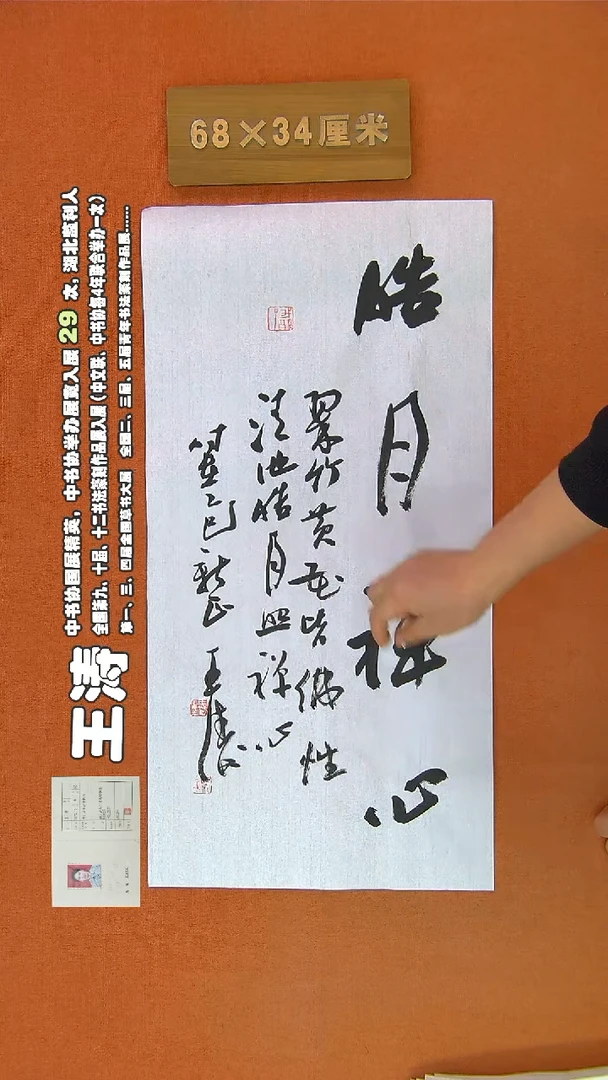 68×34厘米
皓月禅心
翠竹黄花皆佛性
清池皓月照禅心
乙巳新正 王涛
王涛
中书协国展精英,中书协举办展赛入展 29 次,湖北监利人
全国第九、十届、十二书法篆刻作品展入展(中文联、中书协每4年联合举办一次)
第一、三、四届全国草书大展 全国二、三届、五届青年书法篆刻作品展……